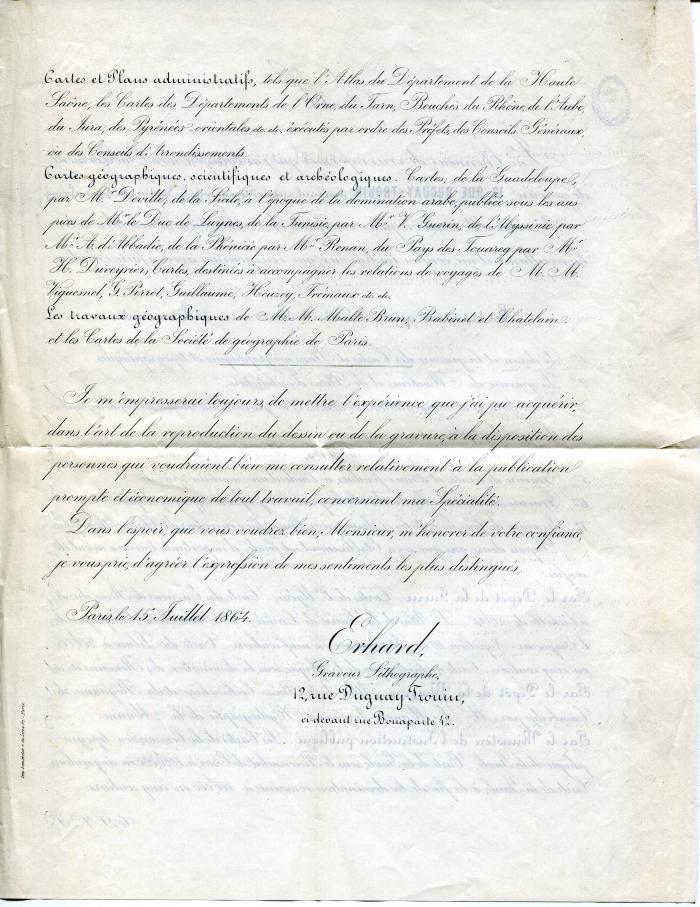 Cartes et Plans administratifs, tels que l'Atlas du Département de la Haute
Saône, les Cartes des Départements de l'Orne, du Tarn, Bouches du Rhône, de l'Aube,
du Jura, des Pyrénées orientales etc. etc. exécutés par ordre des Préfets, des Conseils Généraux
ou des Conseils d'Arrondissements.
Cartes géographiques, scientifiques et archéologiques. Cartes, de la Guadeloupe,
par Mr. Deville, de la Sicile, à l'époque de la domination arabe, publiée sous les aus-
pices de Mr. le Duc de Luynes, de la Tunisie, par Mr. V. Guerin, de l'Abyssinie par
Mr. A. d'Abbadie, de la Phénicie par Mr. Renan, du Pays des Touareg par Mr.
H. Duveyrier; Cartes, destinées à accompagner les relations de voyages de M. M.
Viquesnel, G. Perrot, Guillaume, Heuzey, Trémaux etc. etc.
Les travaux géographiques de M. M. Malte Brun, Babinet et Chatelain.
et les Cartes de la Société de géographie de Paris.
Je m'empresserai toujours, de mettre l'expérience que j'ai pu acquérir,
dans l'art de la reproduction du dessin ou de la gravure, à la disposition des
personnes qui voudraient bien me consulter relativement à la publication
prompte et économique de tout travail, concernant ma Spécialité.
Dans l'espoir, que vous voudrez bien, Monsieur, m'honorer de votre confiance,
je vous prie, d'agréer l'expression de mes sentiments les plus distingués.
Paris, le 15 Juillet 1864.
Erhard,
Graveur Lithographe,
12, rue Duguay-Trouin,
ci-devant rue Bonaparte 42.